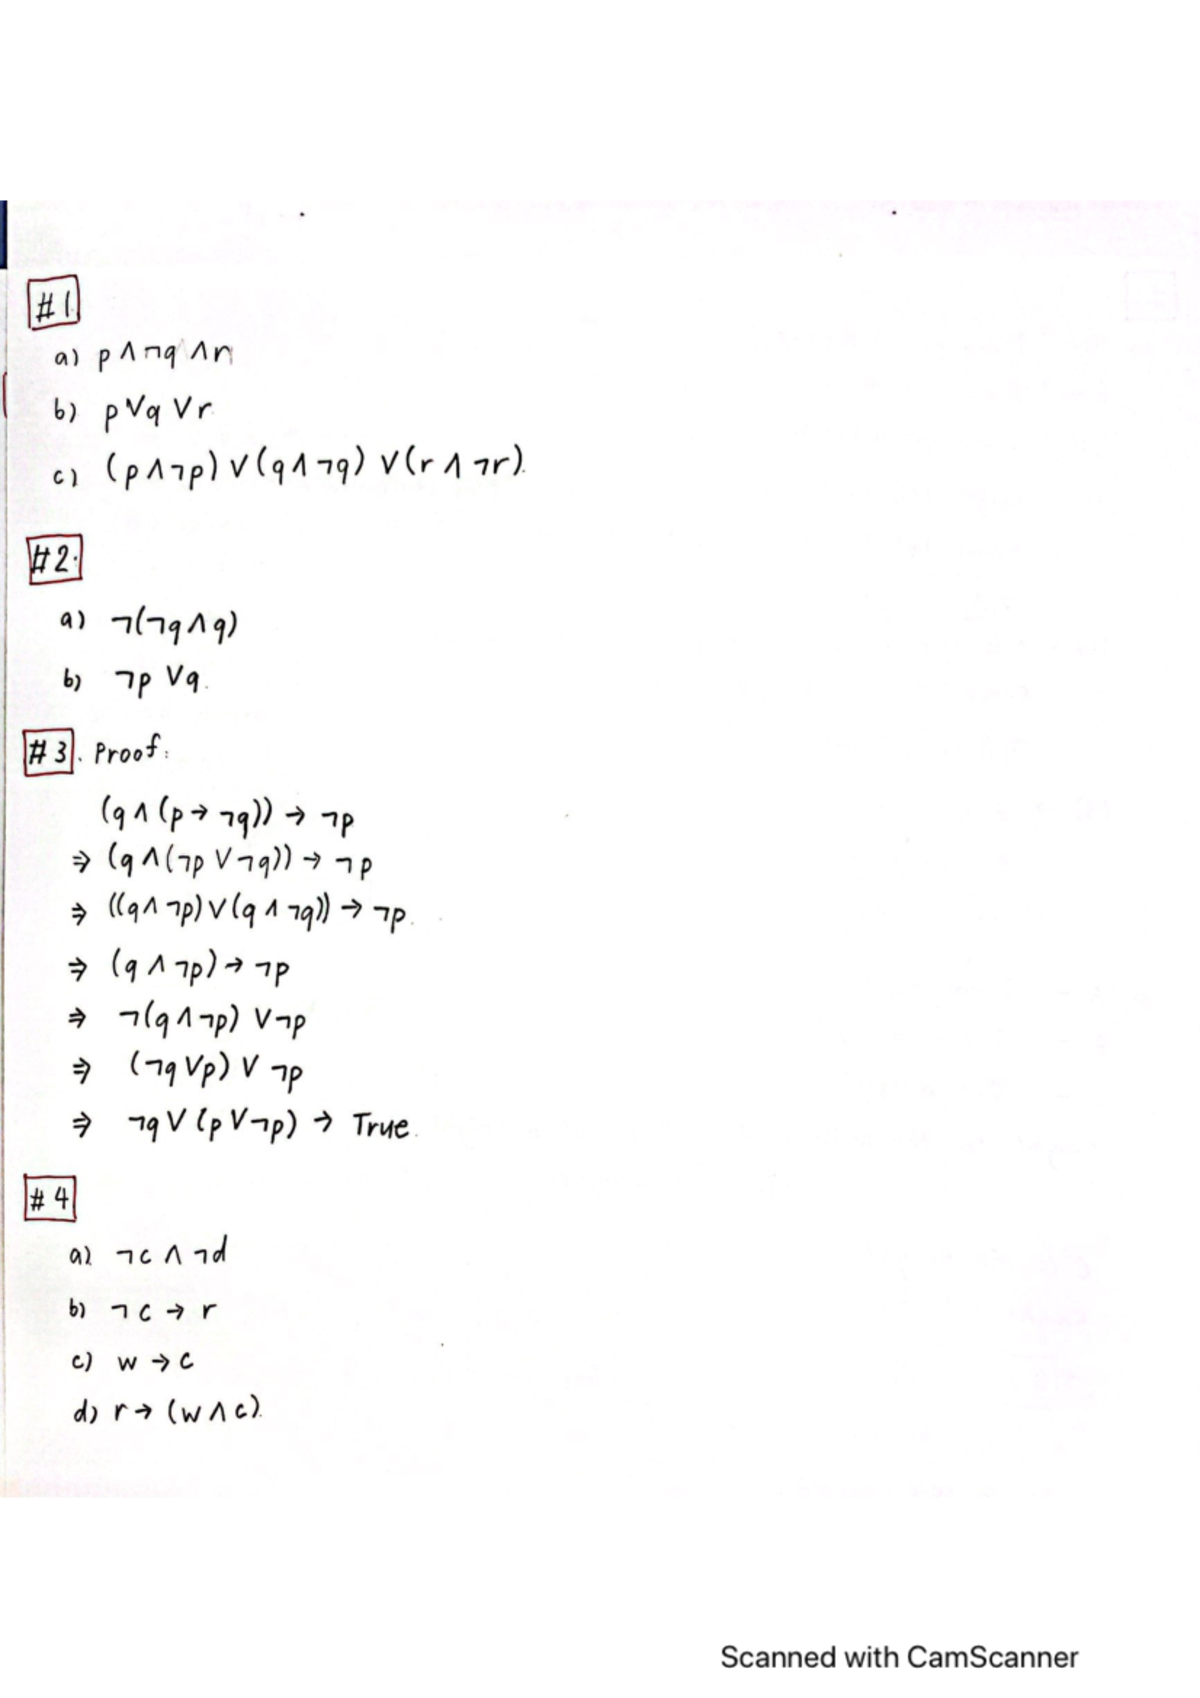 #1.
a) p ∧ ¬q ∧ r
b) p ∨ q ∨ r.
c) (p ∧ ¬p) ∨ (q ∧ ¬q) ∨ (r ∧ ¬r).
#2.
a) ¬(¬q ∧ q)
b) ¬p ∨ q.
#3. Proof:
(q ∧ (p → ¬q)) → ¬p
⇒ (q ∧ (¬p ∨ ¬q)) → ¬p
⇒ ((q ∧ ¬p) ∨ (q ∧ ¬q)) → ¬p.
⇒ (q ∧ ¬p) → ¬p
⇒ ¬(q ∧ ¬p) ∨ ¬p
⇒ (¬q ∨ p) ∨ ¬p
⇒ ¬q ∨ (p ∨ ¬p) → True.
#4
a) ¬c ∧ ¬d
b) ¬c → r
c) w → c
d) r → (w ∧ c).
Scanned with CamScanner